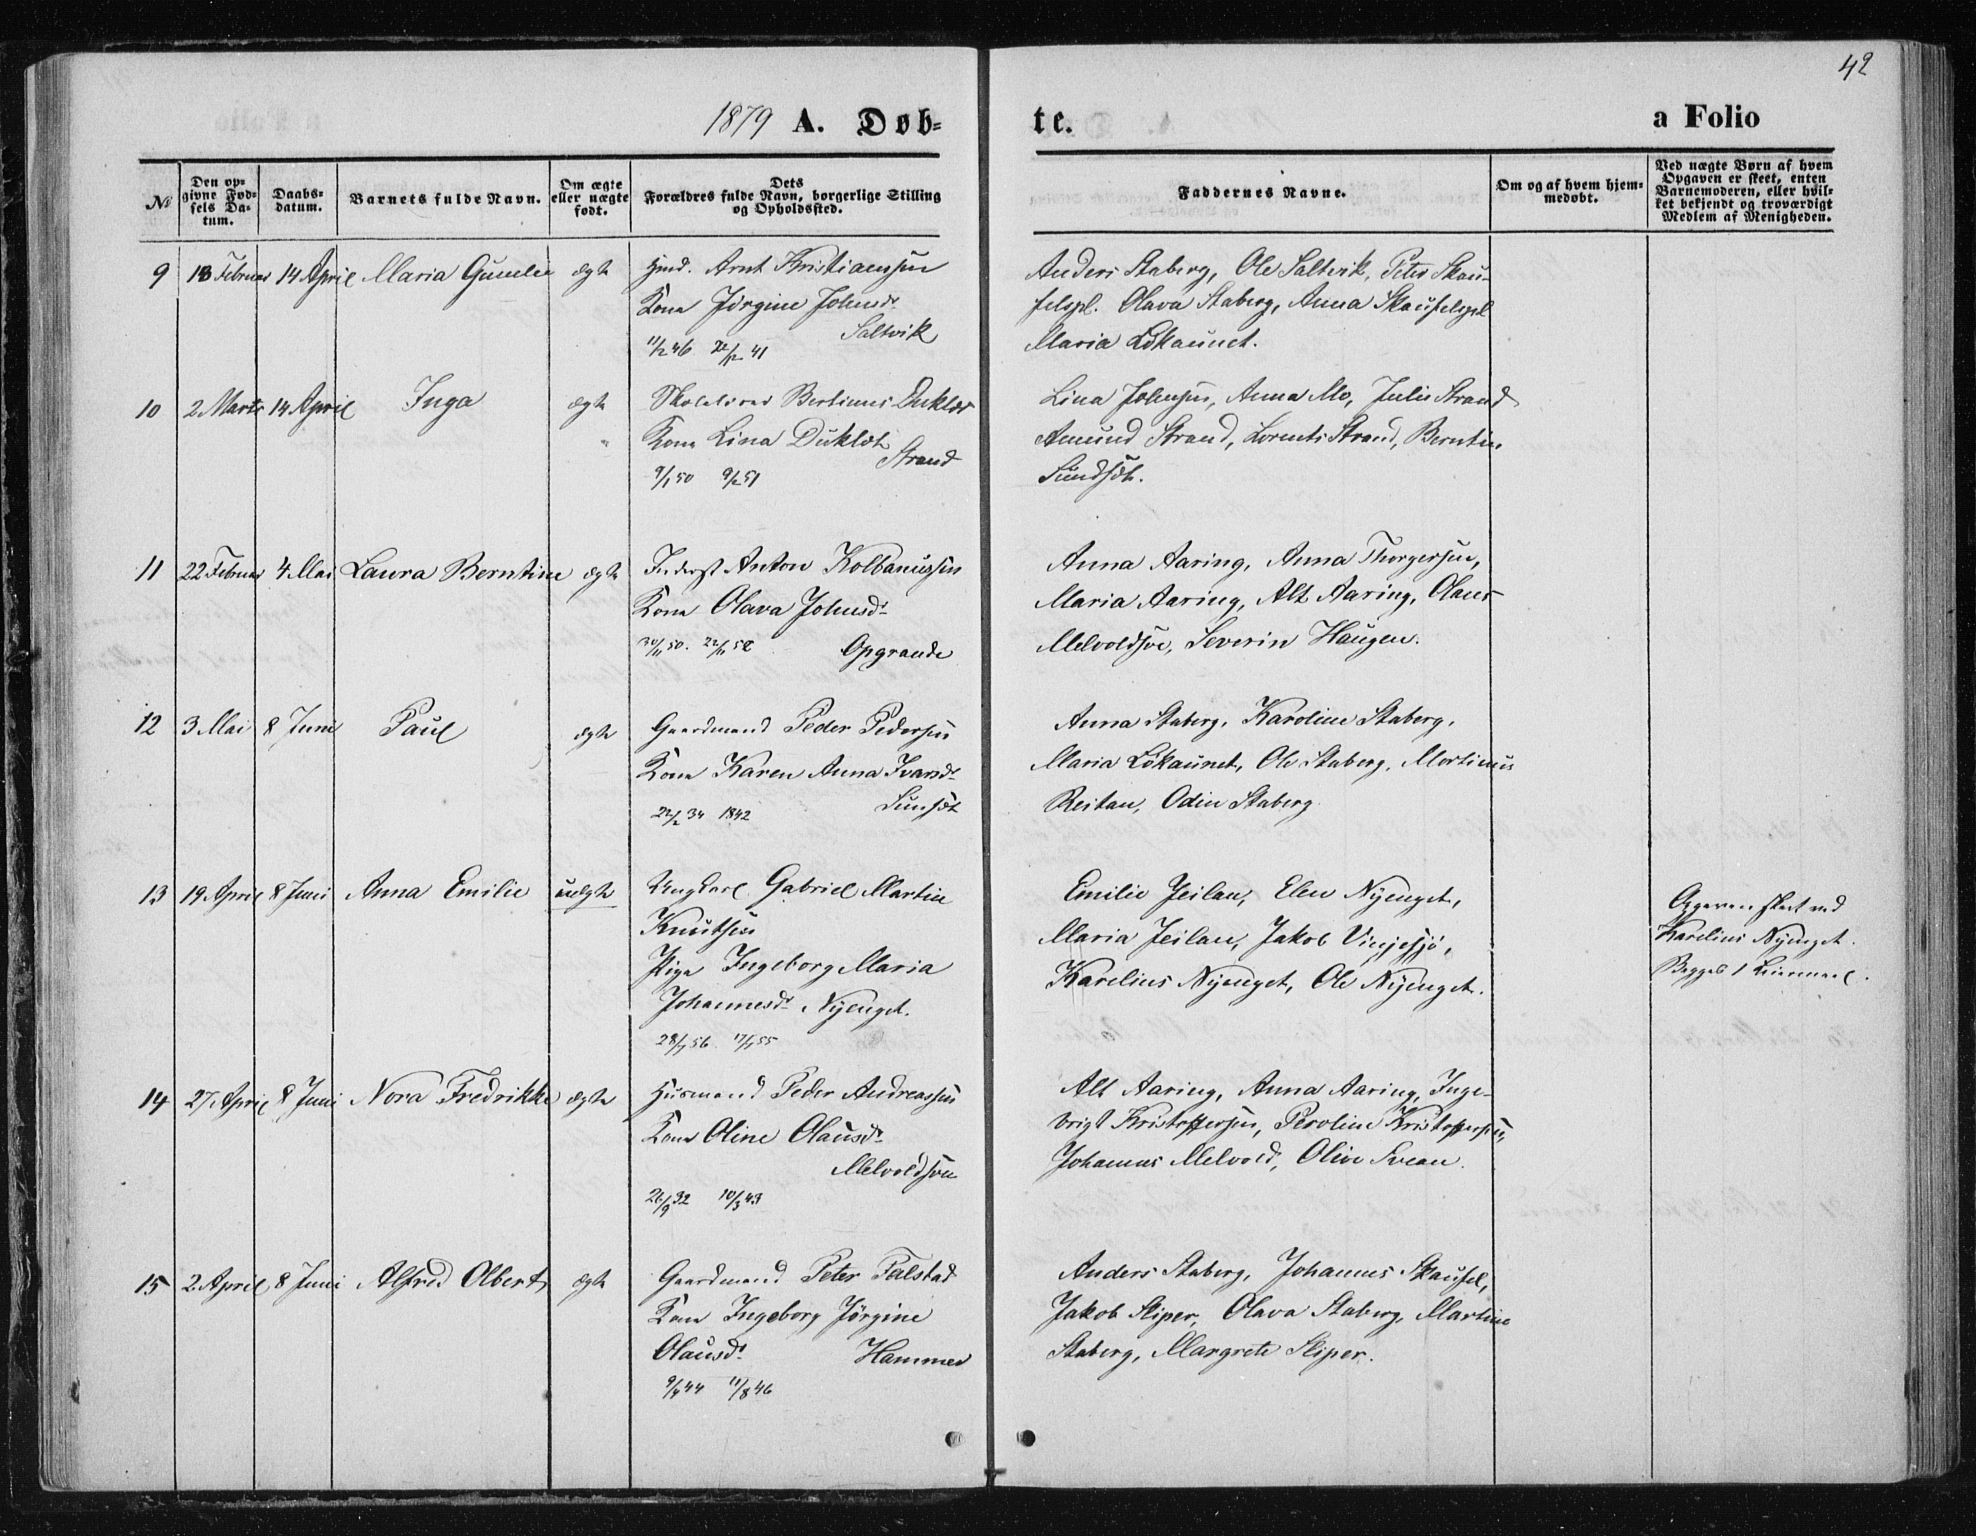 42
1879 A. Døb-
te.
a Folio
No
Den op-
givne Fød-
sels Da-
tum.
Daabs-
datum.
Barnets fulde Navn.
Om ægte
eller uægte
født.
Dets
Forældres fulde Navn, borgerlige Stilling
og Opholdssted.
Faddernes Navne.
Om og af hvem hjem-
medøbt.
Ved uægte Børn af hvem
Opgaven er skeet, enten
Barnemoderen, eller hvil-
ket bekjendt og troværdigt
Medlem af Menigheden.
9 18 Februar 14 April Maria Gunelie ægte Hmd. Arnt Kristiansen
Kone Jørgine Johnsdr
Saltvik
11/2 46 22/12 41
Anders Staberg, Ole Saltvik, Peter Skau-
felspl. Olava Staberg, Anna Skaufelspl
Maria Løkaunet.
10 2 Marts 14 April Inga ægte Skolelærer Bertinus Duklæt
Kone Lina Duklæt
Strand
9/1 50 9/2 51
Lina Johnsen, Anna Mo, Julie Strand
Amund Strand, Lorents Strand, Berntin
Sundsøt.
11 22 Februar 4 Mai Laura Berntine ægte Inderst Anton Kolbanussen
Kone Olava Johnsdr
Opgrande
30/11 50. 22/11 52
Anna Aaring, Anna Thorgersen,
Maria Aaring, Alt Aaring, Olaus
Melvoldsve, Severin Haugen.
12 3 Mai 8 Juni Paul ægte Gaardmand Peder Pedersen
Kone Karen Anna Ivarsdr
Sunsøt
22/2 34 1842
Anna Staberg, Karoline Staberg,
Maria Løkaunet, Ole Staberg, Mortinus
Reitan, Odin Staberg
13 19 April 8 Juni Anna Emilie uægte Ungkarl Gabriel Martin
Knutsen
Pige Ingeborg Maria
Johannesdr Nyenget.
28/7 56 17/7 55
Emilie Jeilan, Elen Nyenget,
Maria Jeilan, Jakob Vinjesjø,
Karelius Nyenget, Ole Nyenget.
Opgaven skeet ved
Karelius Nyenget.
Begges 1 Leiermaal.
14 27 April 8 Juni Nora Fredrikke ægte Husmand Peder Andreassen
Kone Oline Olausdr
Melvoldsve
26/9 32 10/3 43
Alt Aaring, Anna Aaring, Inge-
brigt Kristoffersen, Peroline Kristoffersen,
Johannes Melvold, Olive Svean.
15 2 April 8 Juni Alfred Olbert ægte Gaardmand Peter Falstad
Kone Ingeborg Jørgine
Olausdr Hammer
9/4 44 11/8 46
Anders Staberg, Johannes Skaufel,
Jakob Sliper, Olava Staberg, Martine
Staberg, Margrete Sliper.